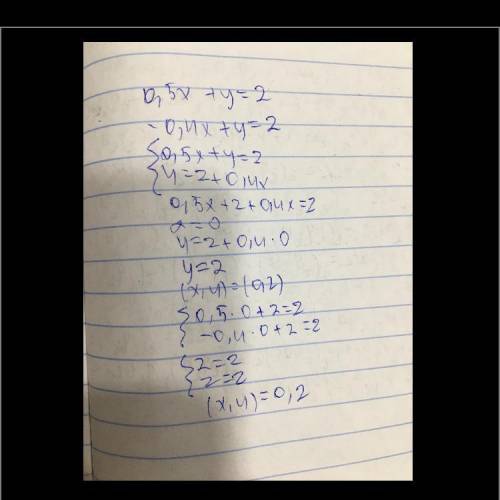 0,5x + y = 2
-0,4x + y = 2
{0,5x + y = 2
{y = 2 + 0,4x
0,5x + 2 + 0,4x = 2
x = 0
y = 2 + 0,4 · 0
y = 2
(x,y) = (0,2)
{0,5 · 0 + 2 = 2
{-0,4 · 0 + 2 = 2
{2 = 2
{2 = 2
(x,y) = 0,2